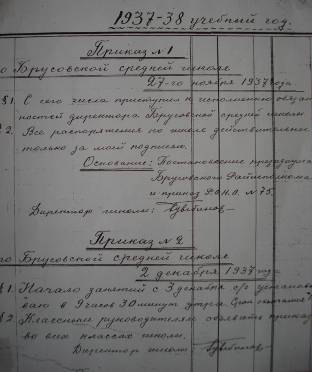 1937-38 учебный год.
Приказ № 1
по Брусовской средней школе
27-го ноября 1937 года
§ 1. С сего числа приступил к исполнению обязан-
ностей директора Брусовской средней школы
§ 2. Все распоряжения по школе действительны
только за моей подписью.
Основание: Постановление президиума
Брусовского Райисполкома
и приказ Р.О.Н.О. № 75.
Директор школы:
Приказ № 2
по Брусовской средней школе
2 декабря 1937 года
§ 1. Начало занятий с 3 декабря с/г установи
ваю в 9 часов 30 минут утра.
§ 2 Классным руководителям объявить приказ
во всех классах школы.
Директор школы